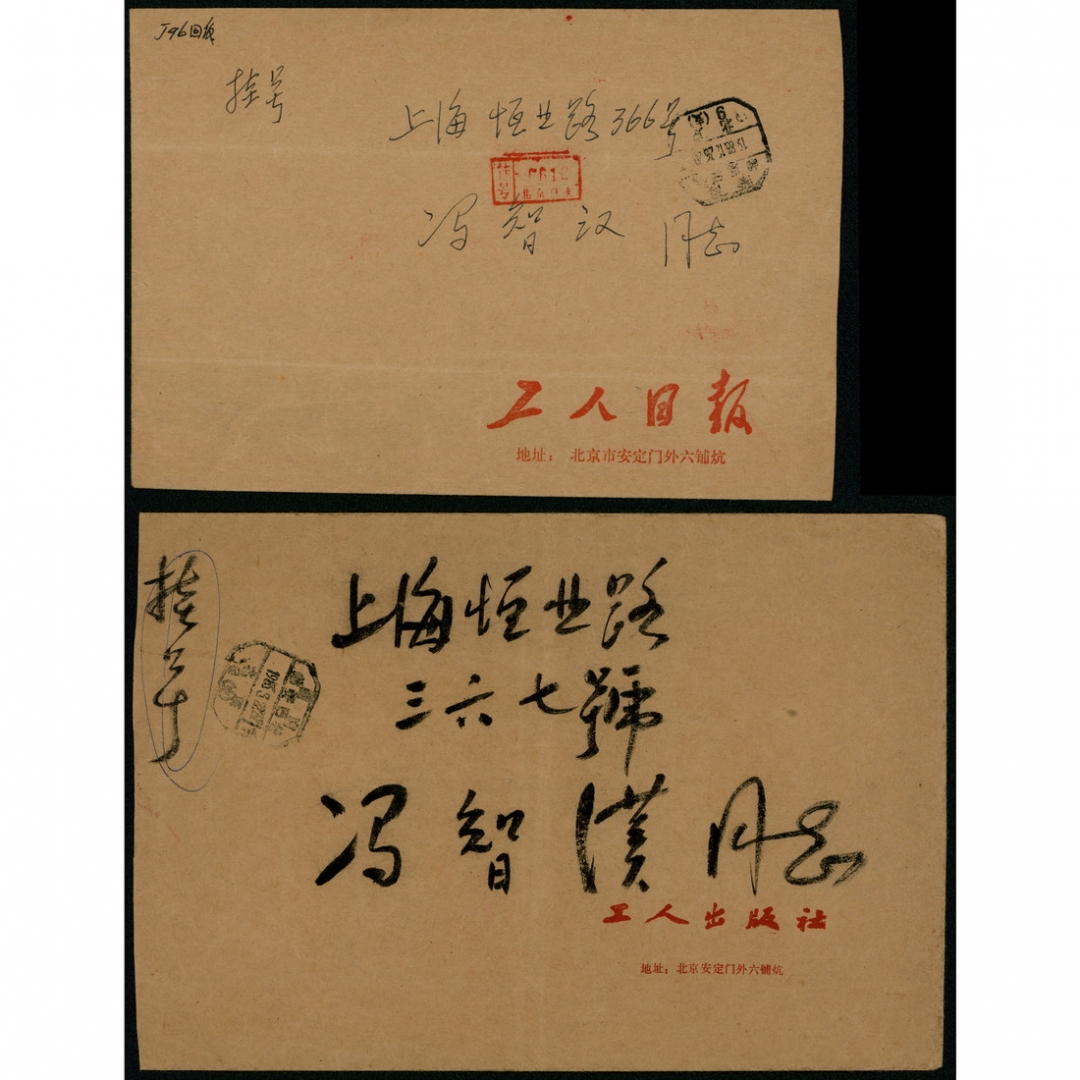 J96回执
挂号
上海恒业路366号
挂号
冯智汉 同志
工人日报
地址：北京市安定门外六铺炕
挂号
上海恒业路
三六七號
冯智漢同志
工人出版社
地址：北京安定门外六铺炕